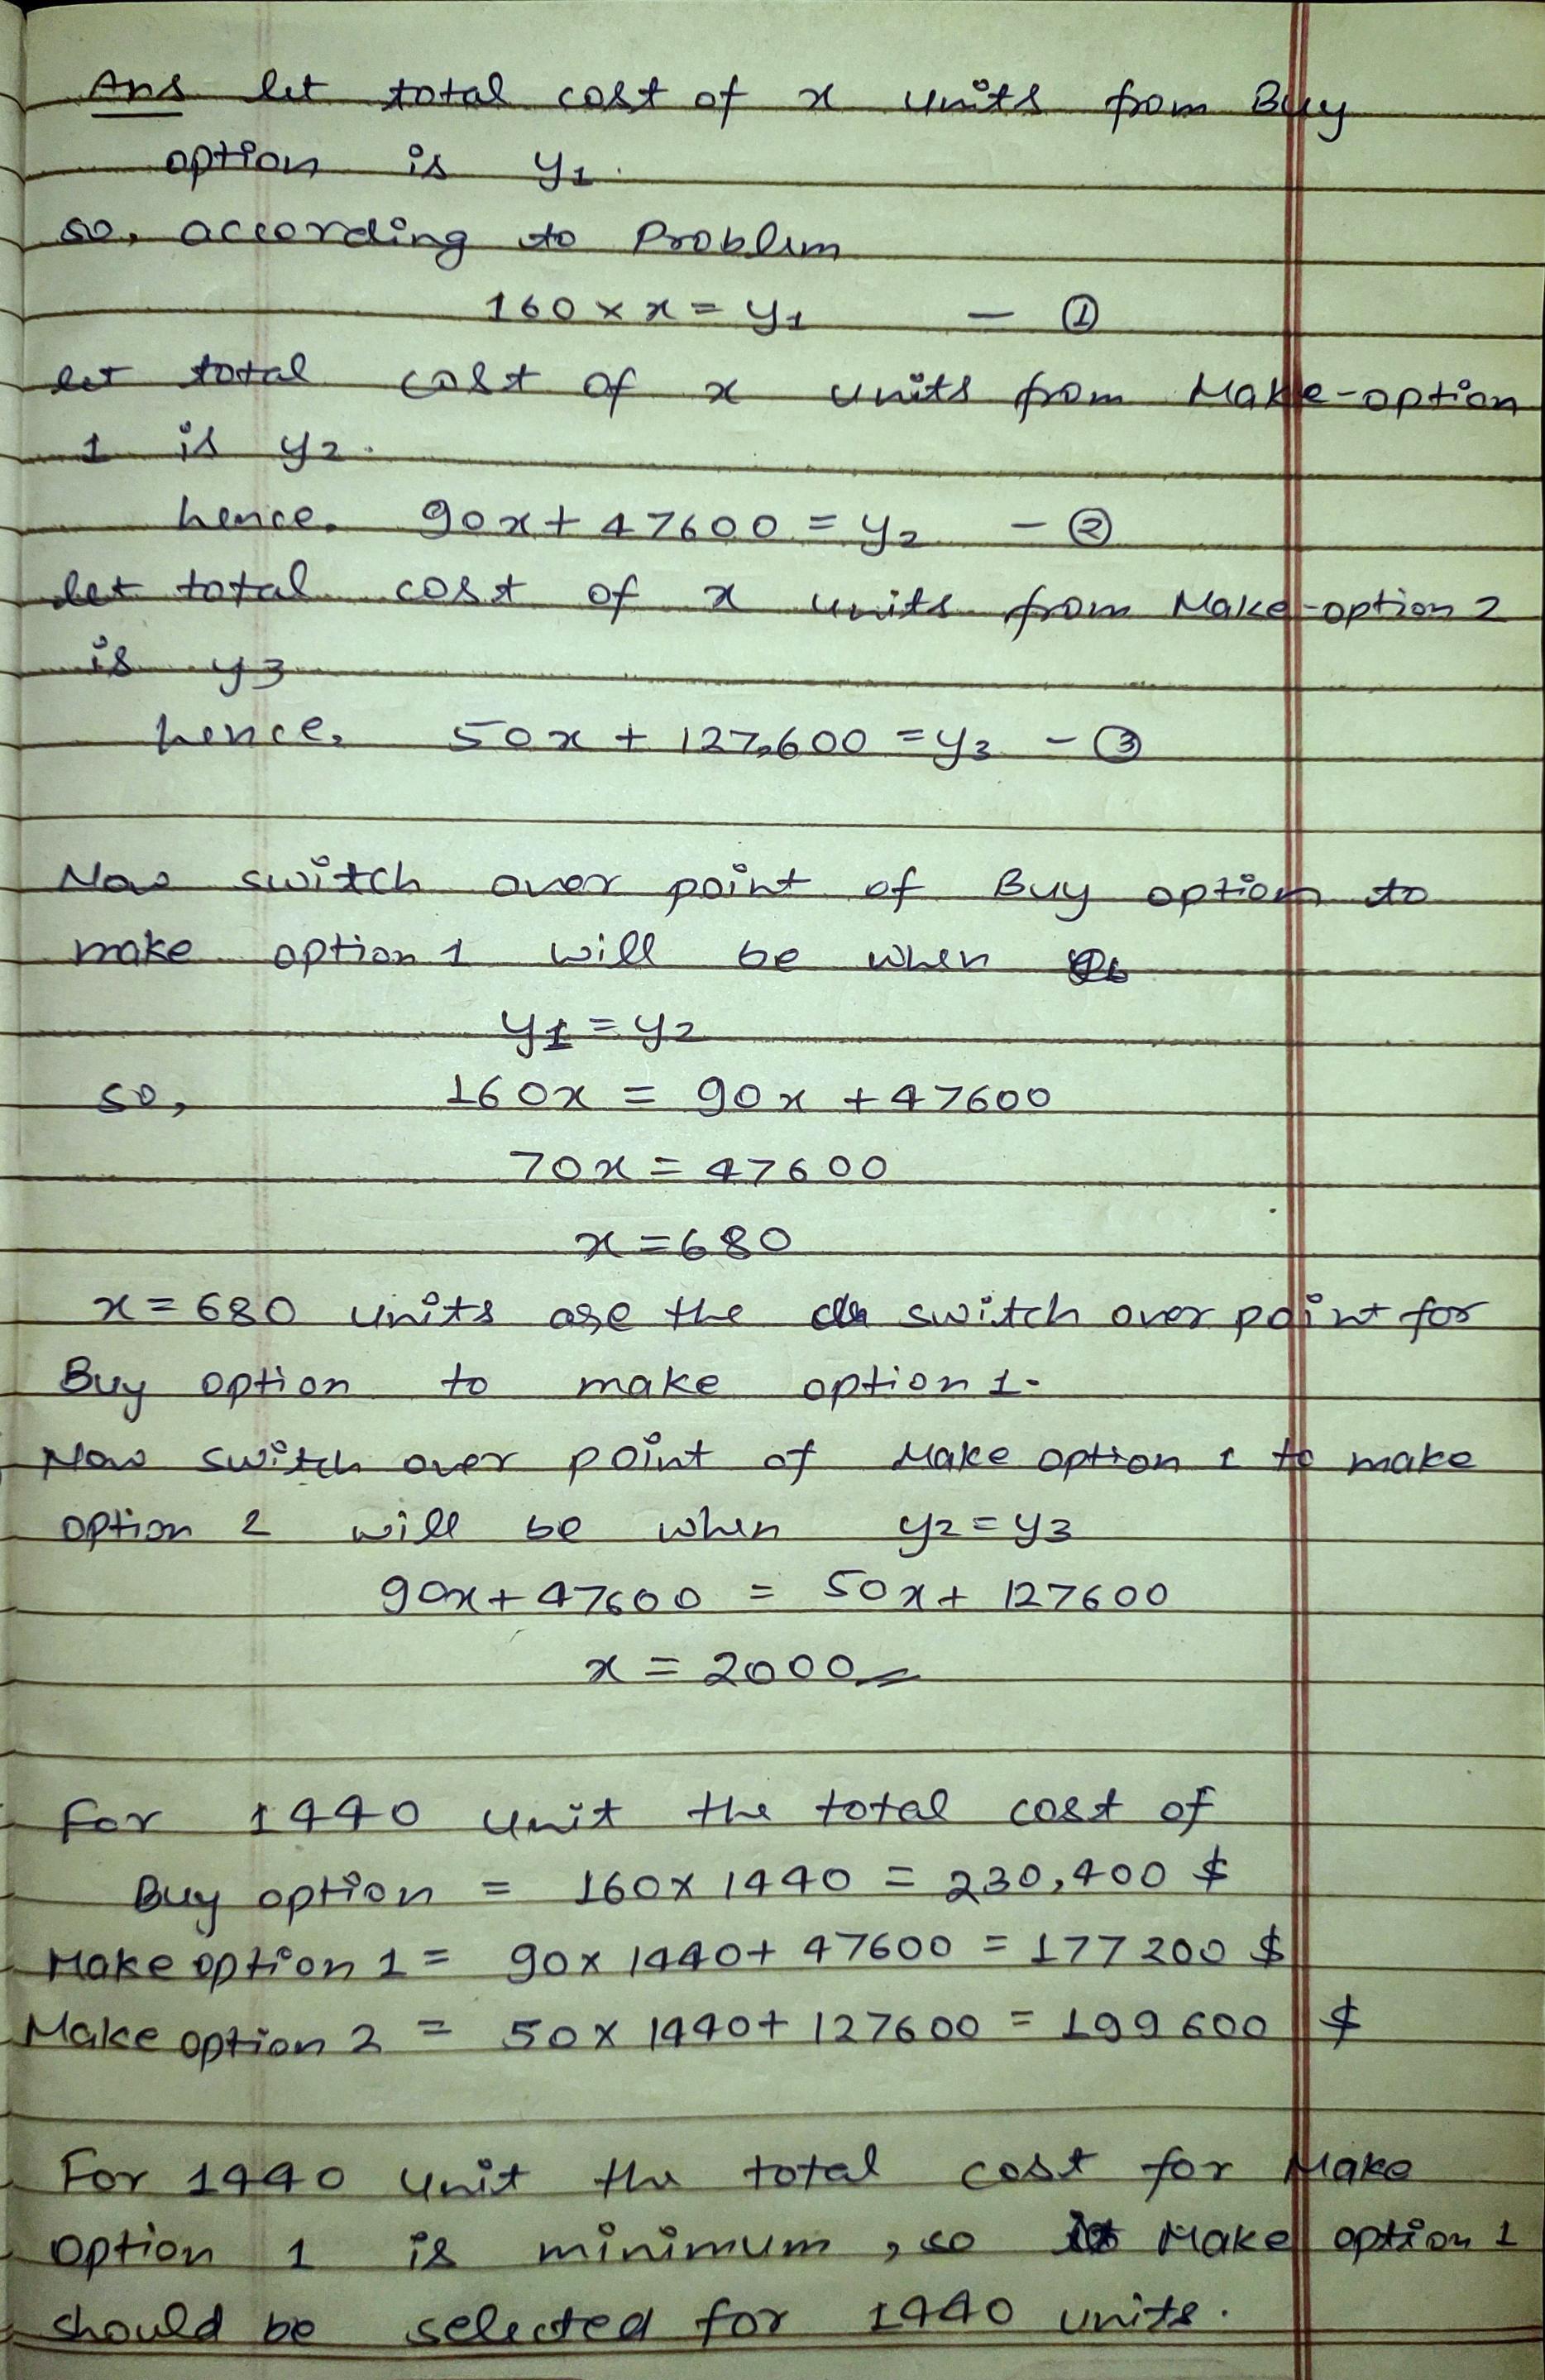 Ans let total cost of x units from Buy
option is y1.
so, according to Problem
160 × x = y1 — ①
let total cost of x units from Make-option
1 is y2.
hence, 90x + 47600 = y2 — ②
let total cost of x units from Make-option 2
is y3
hence, 50x + 127,600 = y3 — ③
Now switch over point of Buy option to
make option 1 will be when
y1 = y2
so, 160x = 90x + 47600
70x = 47600
x = 680
x = 680 units are the switch over point for
Buy option to make option 1.
Now switch over point of Make option 1 to make
option 2 will be when y2 = y3
90x + 47600 = 50x + 127600
x = 2000
For 1440 unit the total cost of
Buy option = 160 × 1440 = 230,400 $
Make option 1 = 90 × 1440 + 47600 = 177200 $
Make option 2 = 50 × 1440 + 127600 = 199600 $
For 1440 unit the total cost for Make
option 1 is minimum, so Make option 1
should be selected for 1440 units.